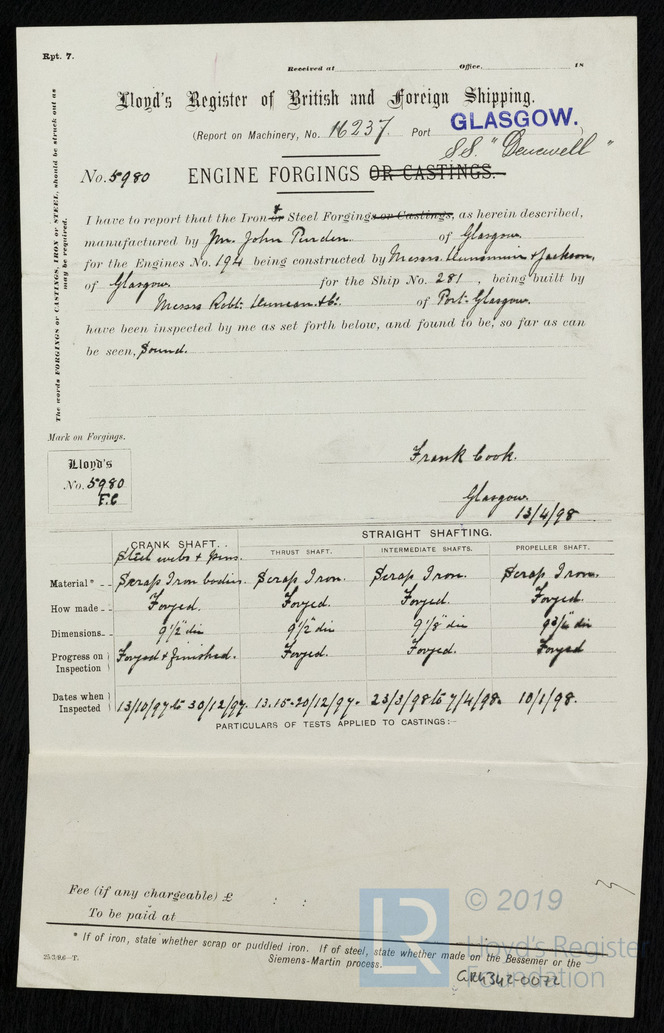 Rpt. 7.
Received at Office. 18
Lloyd's Register of British and Foreign Shipping.
(Report on Machinery, No. 16237. Port GLASGOW.)
S.S. "
No. 5980 ENGINE FORGINGS OR CASTINGS.
I have to report that the Iron or & Steel Forgings or Castings, as herein described,
manufactured by Mr. John of Glasgow
for the Engines No. 194 being constructed by Messrs & Jackson,
of Glasgow for the Ship No. 281, being built by
Messrs Robt. Duncan & Co. of Port-Glasgow.
have been inspected by me as set forth below, and found to be, so far as can
be seen, Sound.
The words FORGINGS or CASTINGS, IRON or STEEL, should be struck out as
may be required.
Mark on Forgings.
Lloyd's
No. 5980
F.C
Frank Cook.
Glasgow
13/4/98
CRANK SHAFT. STRAIGHT SHAFTING.
Steel webs & pins. THRUST SHAFT. INTERMEDIATE SHAFTS. PROPELLER SHAFT.
Material* Scrap Iron bodies. Scrap Iron. Scrap Iron. Scrap Iron.
How made Forged. Forged. Forged. Forged.
Dimensions 9 1/2" dia 9 1/2" dia 9 1/8" dia 9 3/4" dia
Progress on Inspection Forged & finished. Forged. Forged. Forged
Dates when Inspected 13/10/97 to 30/12/97. 13.15-20/12/97. 23/3/98 to 7/4/98. 10/1/98.
PARTICULARS OF TESTS APPLIED TO CASTINGS:—
Fee (if any chargeable) £ : :
To be paid at
* If of iron, state whether scrap or puddled iron. If of steel, state whether made on the Bessemer or the
Siemens-Martin process.
25/3/96—T.
LR
© 2019
Lloyd's Register
Foundation
GRK342-0072